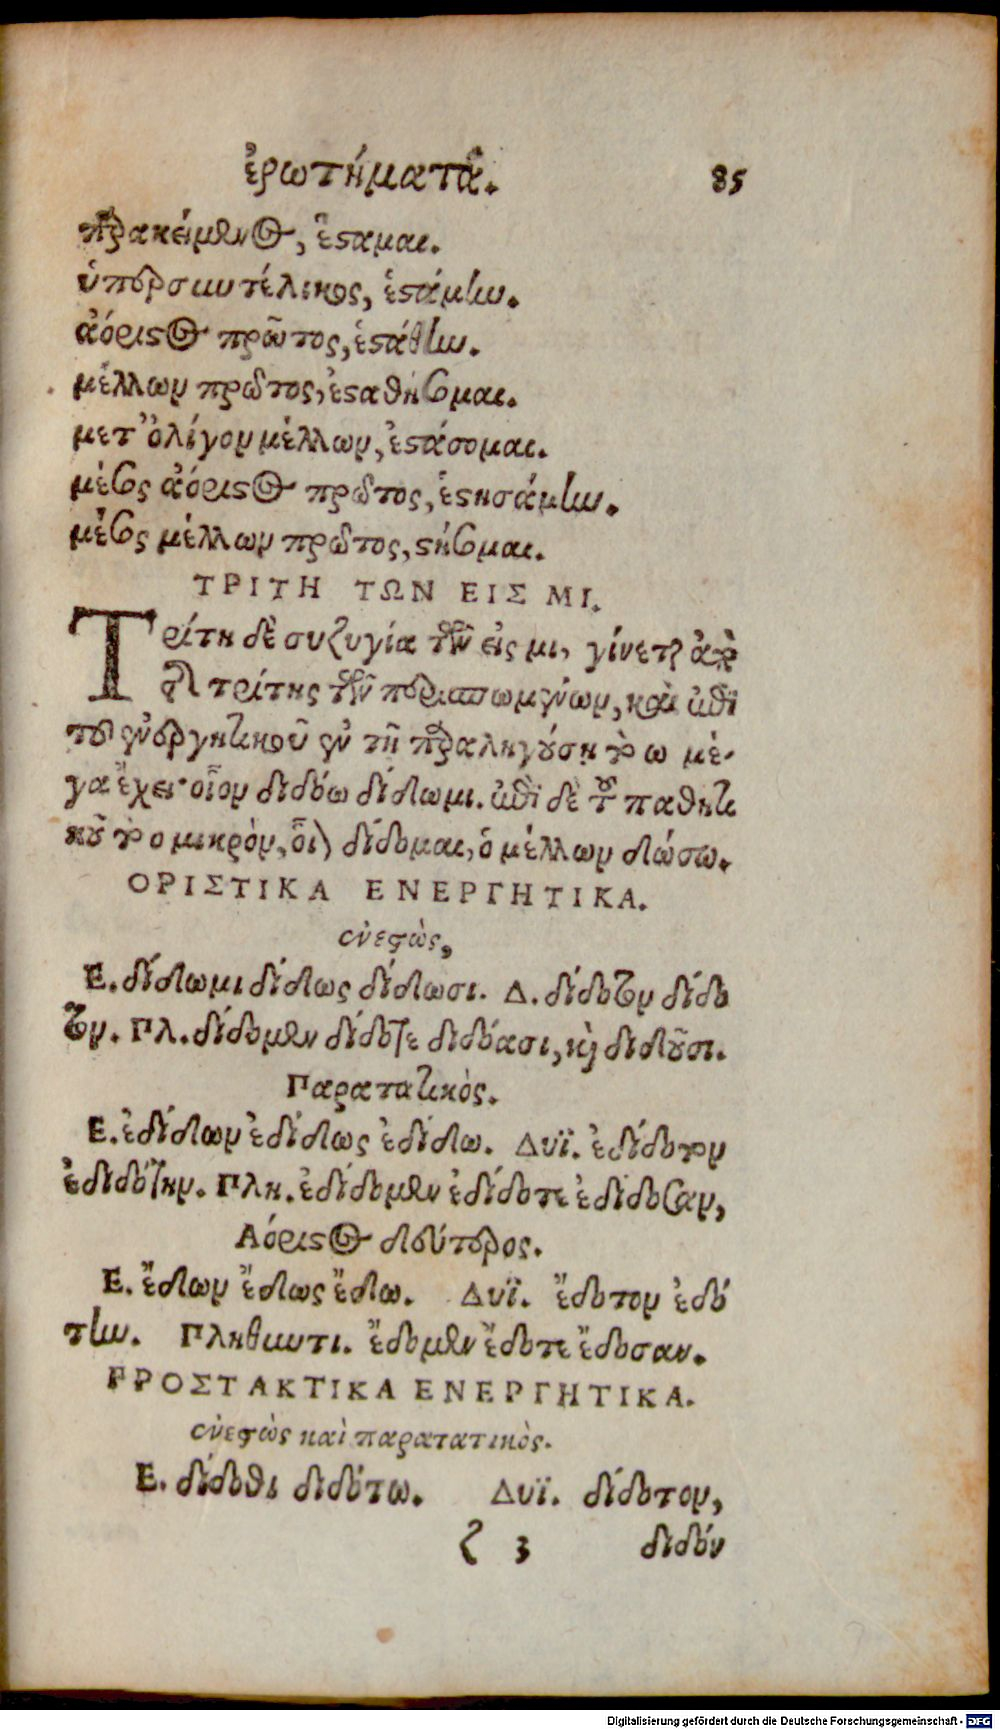 ἐρωτήματα. 85
παρακείμενος, ἕσταμαι.
ὑπερσυντέλικος, ἑστάμην.
ἀόριστος πρῶτος, ἐστάθην.
μέλλων πρῶτος, ἐσταθήσομαι.
μετ' ὀλίγον μέλλων, ἐστάσομαι.
μέσος ἀόριστος πρῶτος, ἐστησάμην.
μέσος μέλλων πρῶτος, στήσομαι.
ΤΡΙΤΗ ΤΩΝ ΕΙΣ ΜΙ.
Τρίτη δὲ συζυγία τῶν εἰς μι, γίνεται ἀπὸ
τῆς τρίτης τῶν περισπωμένων, καὶ ἐπὶ
τοῦ ἐνεργητικοῦ ἐν τῇ παραληγούσῃ τὸ ω μέ-
γα ἔχει· οἷον διδόω δίδωμι. ἐπὶ δὲ τοῦ παθητι
κοῦ τὸ ο μικρὸν, οἷον δίδομαι, ὁ μέλλων δώσω.
ΟΡΙΣΤΙΚΑ ΕΝΕΡΓΗΤΙΚΑ.
ἐνεστὼς,
Ε. δίδωμι δίδως δίδωσι. Δ. δίδοτον δίδο
τον. Πλ. δίδομεν δίδοτε διδόασι, καὶ διδοῦσι.
Παρατατικὸς.
Ε. ἐδίδων ἐδίδως ἐδίδω. Δυϊ. ἐδίδοτον
ἐδιδότην. Πλη. ἐδίδομεν ἐδίδοτε ἐδίδοσαν,
Αόριστος δεύτερος.
Ε. ἔδων ἔδως ἔδω. Δυϊ. ἔδοτον ἐδό
την. Πληθυντι. ἔδομεν ἔδοτε ἔδοσαν.
ΡΡΟΣΤΑΚΤΙΚΑ ΕΝΕΡΓΗΤΙΚΑ.
ἐνεστὼς καὶ παρατατικὸς.
Ε. δίδοθι διδότω. Δυϊ. δίδοτον,
ζ 3 διδόν
Digitalisierung gefördert durch die Deutsche Forschungsgemeinschaft - DFG